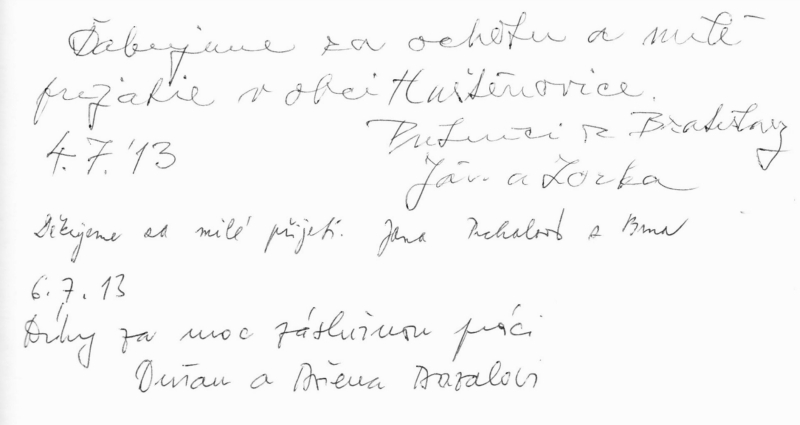 Ďakujeme za ochotu a milé
prijatie v obci Huštěnovice.
z Bratislavy
4.7.'13
Ján a Zorka
Děkujeme za milé přijetí. Jana z Brna
6.7.13
Díky za moc záslužnou práci
Dušan a